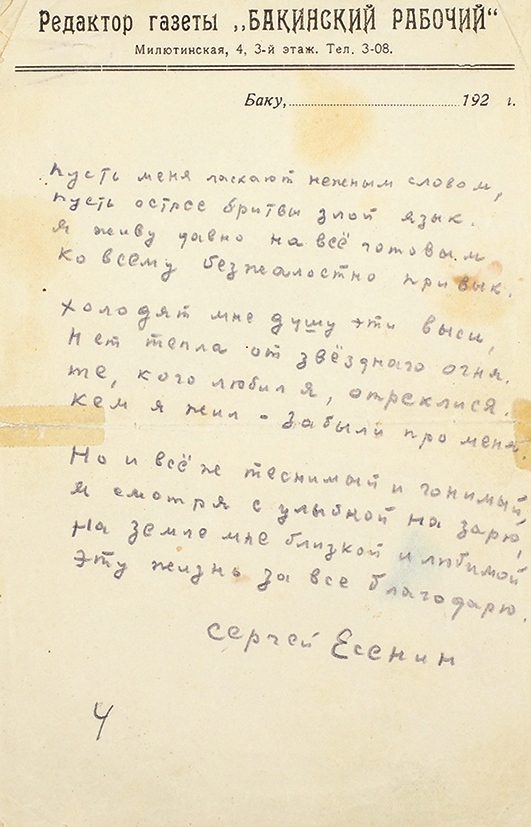 Редактор газеты „БАКИНСКИЙ РАБОЧИЙ“
Милютинская, 4, 3-й этаж. Тел. 3-08.
Баку,..........................192 г.
Пусть меня ласкают нежным словом,
Пусть острее бритвы злой язык.
Я живу давно на всё готовым
Ко всему безжалостно привык.
Холодят мне душу эти выси,
Нет тепла от звёзднаго огня.
Те, кого любил я, отреклися.
Кем я жил - забыли про меня.
Но и всё ж теснимый и гонимый,
Я смотря с улыбкой на зарю,
На земле мне близкой и любимой
Эту жизнь за все благодарю.
Сергей Есенин
4